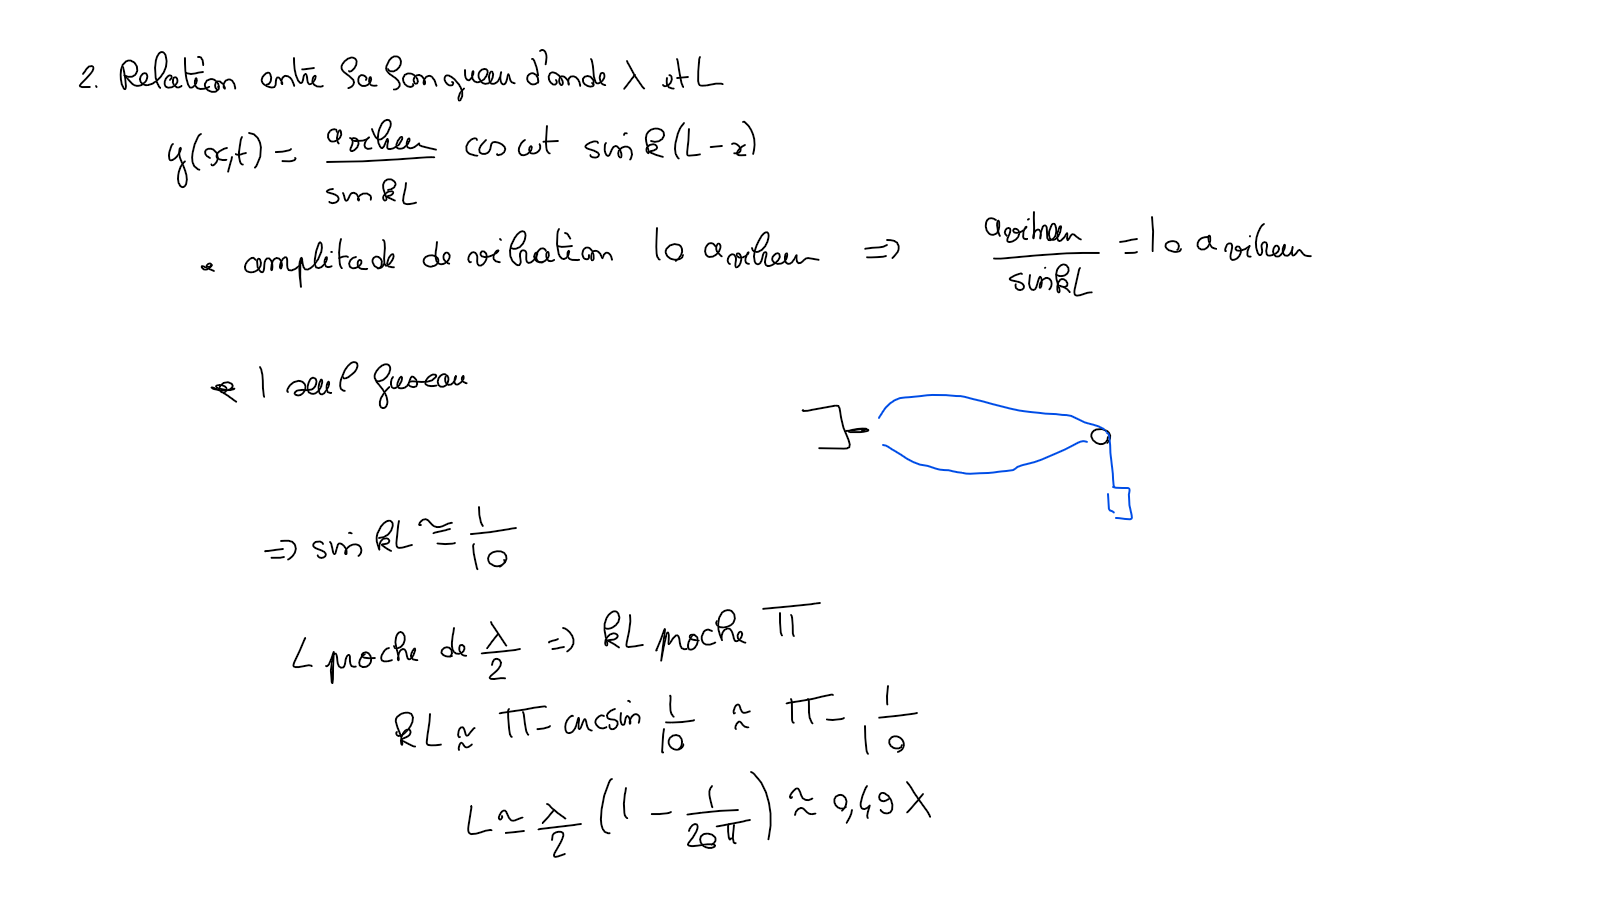 2. Relation entre la longueur d'onde λ et L
y(x,t) = a vibreur / sin kL cos ωt sin k(L-x)
• amplitude de vibration 10 a vibreur => a vibreur / sin kL = 10 a vibreur
• 1 seul fuseau
=> sin kL ≃ 1/10
L proche de λ/2 => kL proche π
kL ≈ π - arcsin 1/10 ≈ π - 1/10
L ≃ λ/2 (1 - 1/20π) ≈ 0,49 λ